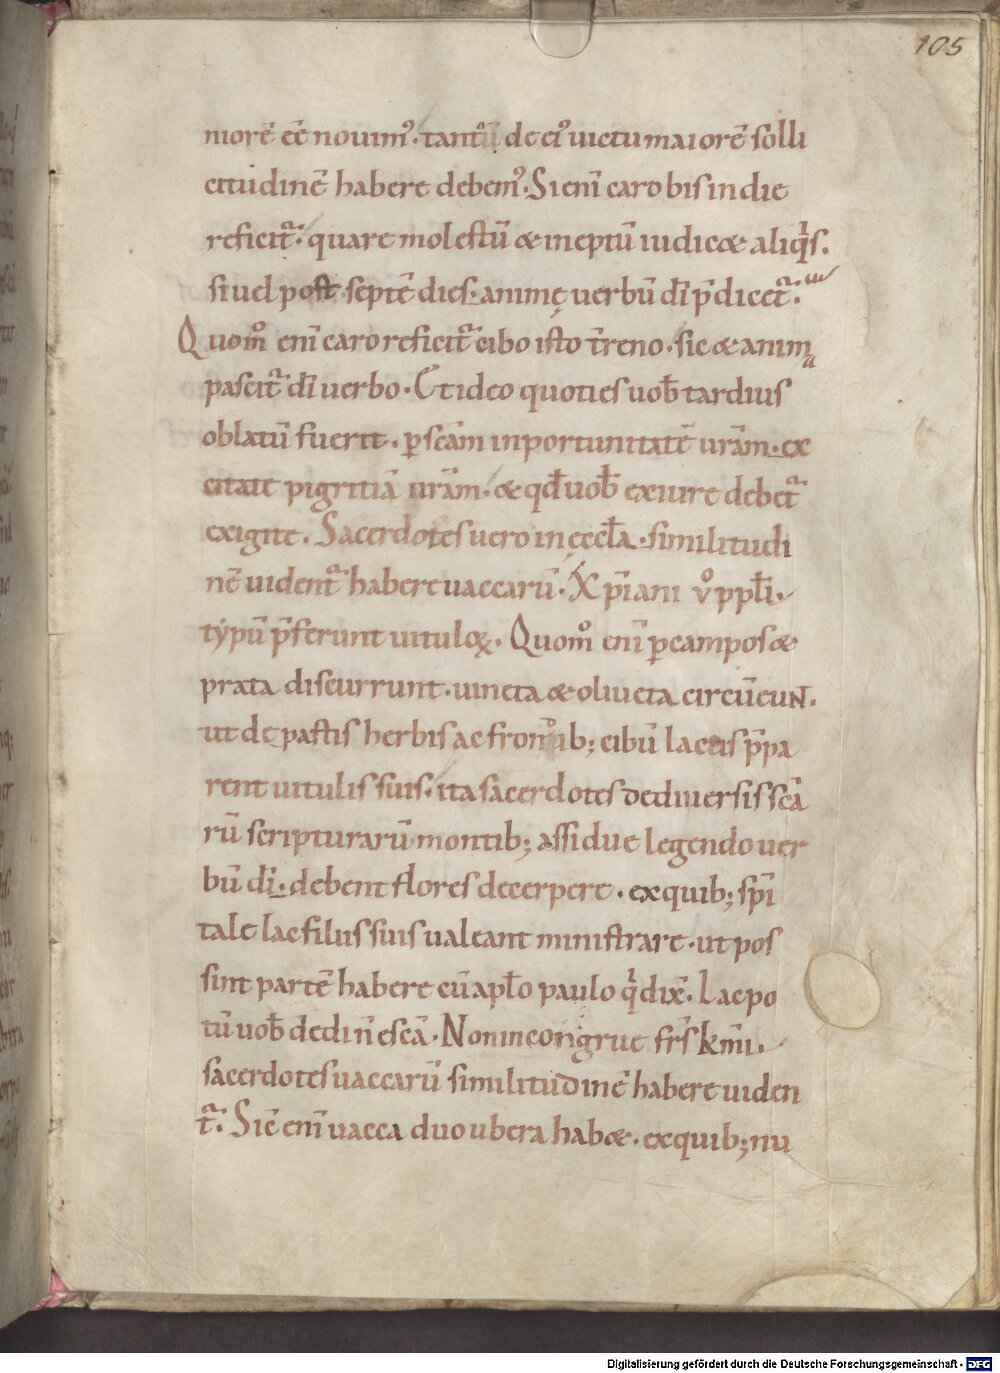 105
niorē eē novim᾽. tantū de ei᾽ uictu maiorē solli
citudinē habere debem᾽. Si eni caro bis in die
reficit᷑. quare molestū & ineptū iudic& aliq̍s.
si uel post septē dies. animę uerbū dī p̄dicet᷑.
Quom̊ enī caro reficit᷑ cibo isto t̄reno. sic & anima
pascit᷑ dī uerbo. Et ideo quoties uob̄ tardius
oblatū fuerit. ꝑ scām inportunitatē urām. ex
citate pigritiā urām. & qd̄ uob̄ exiure debet᷑
exigite. Sacerdotes uero in ęccl̄a. similitudi
nē uident᷑ habere uaccarū. Xp̄iani v̊ ppl̄i.
typū p̄ferunt uituloꝝ. Quom̊ enī ꝑ campos &
prata discurrunt. uineta & oliueta circūeuɴ̄.
ut de pastis herbis ac frondib; cibū lactis p̄pa
rent uitulis suis. ita sacerdotes de diuersis scā
rū scripturarū montib; assidue legendo uer
bū dī. debent flores decerpere. ex quib; sp̄i
tale lac filiis suis ualeant ministrare. ut pos
sint partē habere cū apl̄o paulo q̍ dix̄. Lac po
tū uob̄ dedi n̄ escā. Non incongrue fr̄s km̄i.
sacerdotes uaccarū similitudinē habere uiden
t᷑. Sic̄ enī uacca duo ubera hab&. ex quib; nu
Digitalisierung gefördert durch die Deutsche Forschungsgemeinschaft - DFG